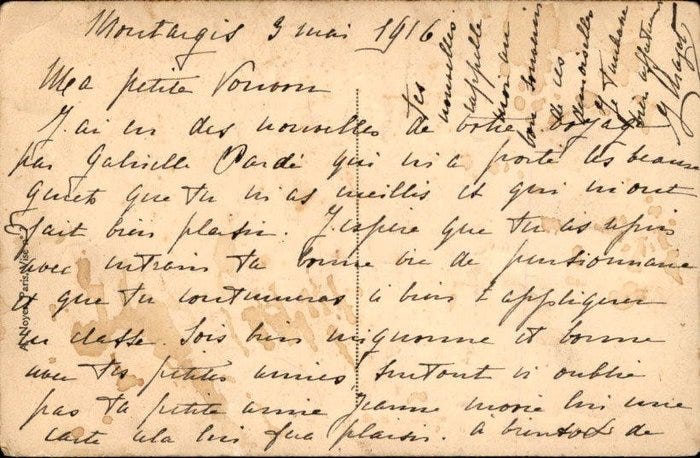 Montargis 3 mai 1916
Ma petite
J'ai eu des nouvelles de votre voyage
par Gabrielle Pardé qui m'a porté les beaux
que tu m'as cueillis et qui m'ont
fait bien plaisir. J'espère que tu as repris
avec entrain ta bonne vie de pensionnaire
et que tu continueras à bien t'appliquer
en classe. Sois bien mignonne et bonne
avec tes petites amies, surtout n'oublie
pas ta petite amie Jeanne Marie une
carte cela lui fera plaisir. à bientôt de
tes
nouvelles
rappelle
moi au
bon souvenir
de ces
demoiselles
Je t'embrasse
bien affectueus
Noyer, Paris